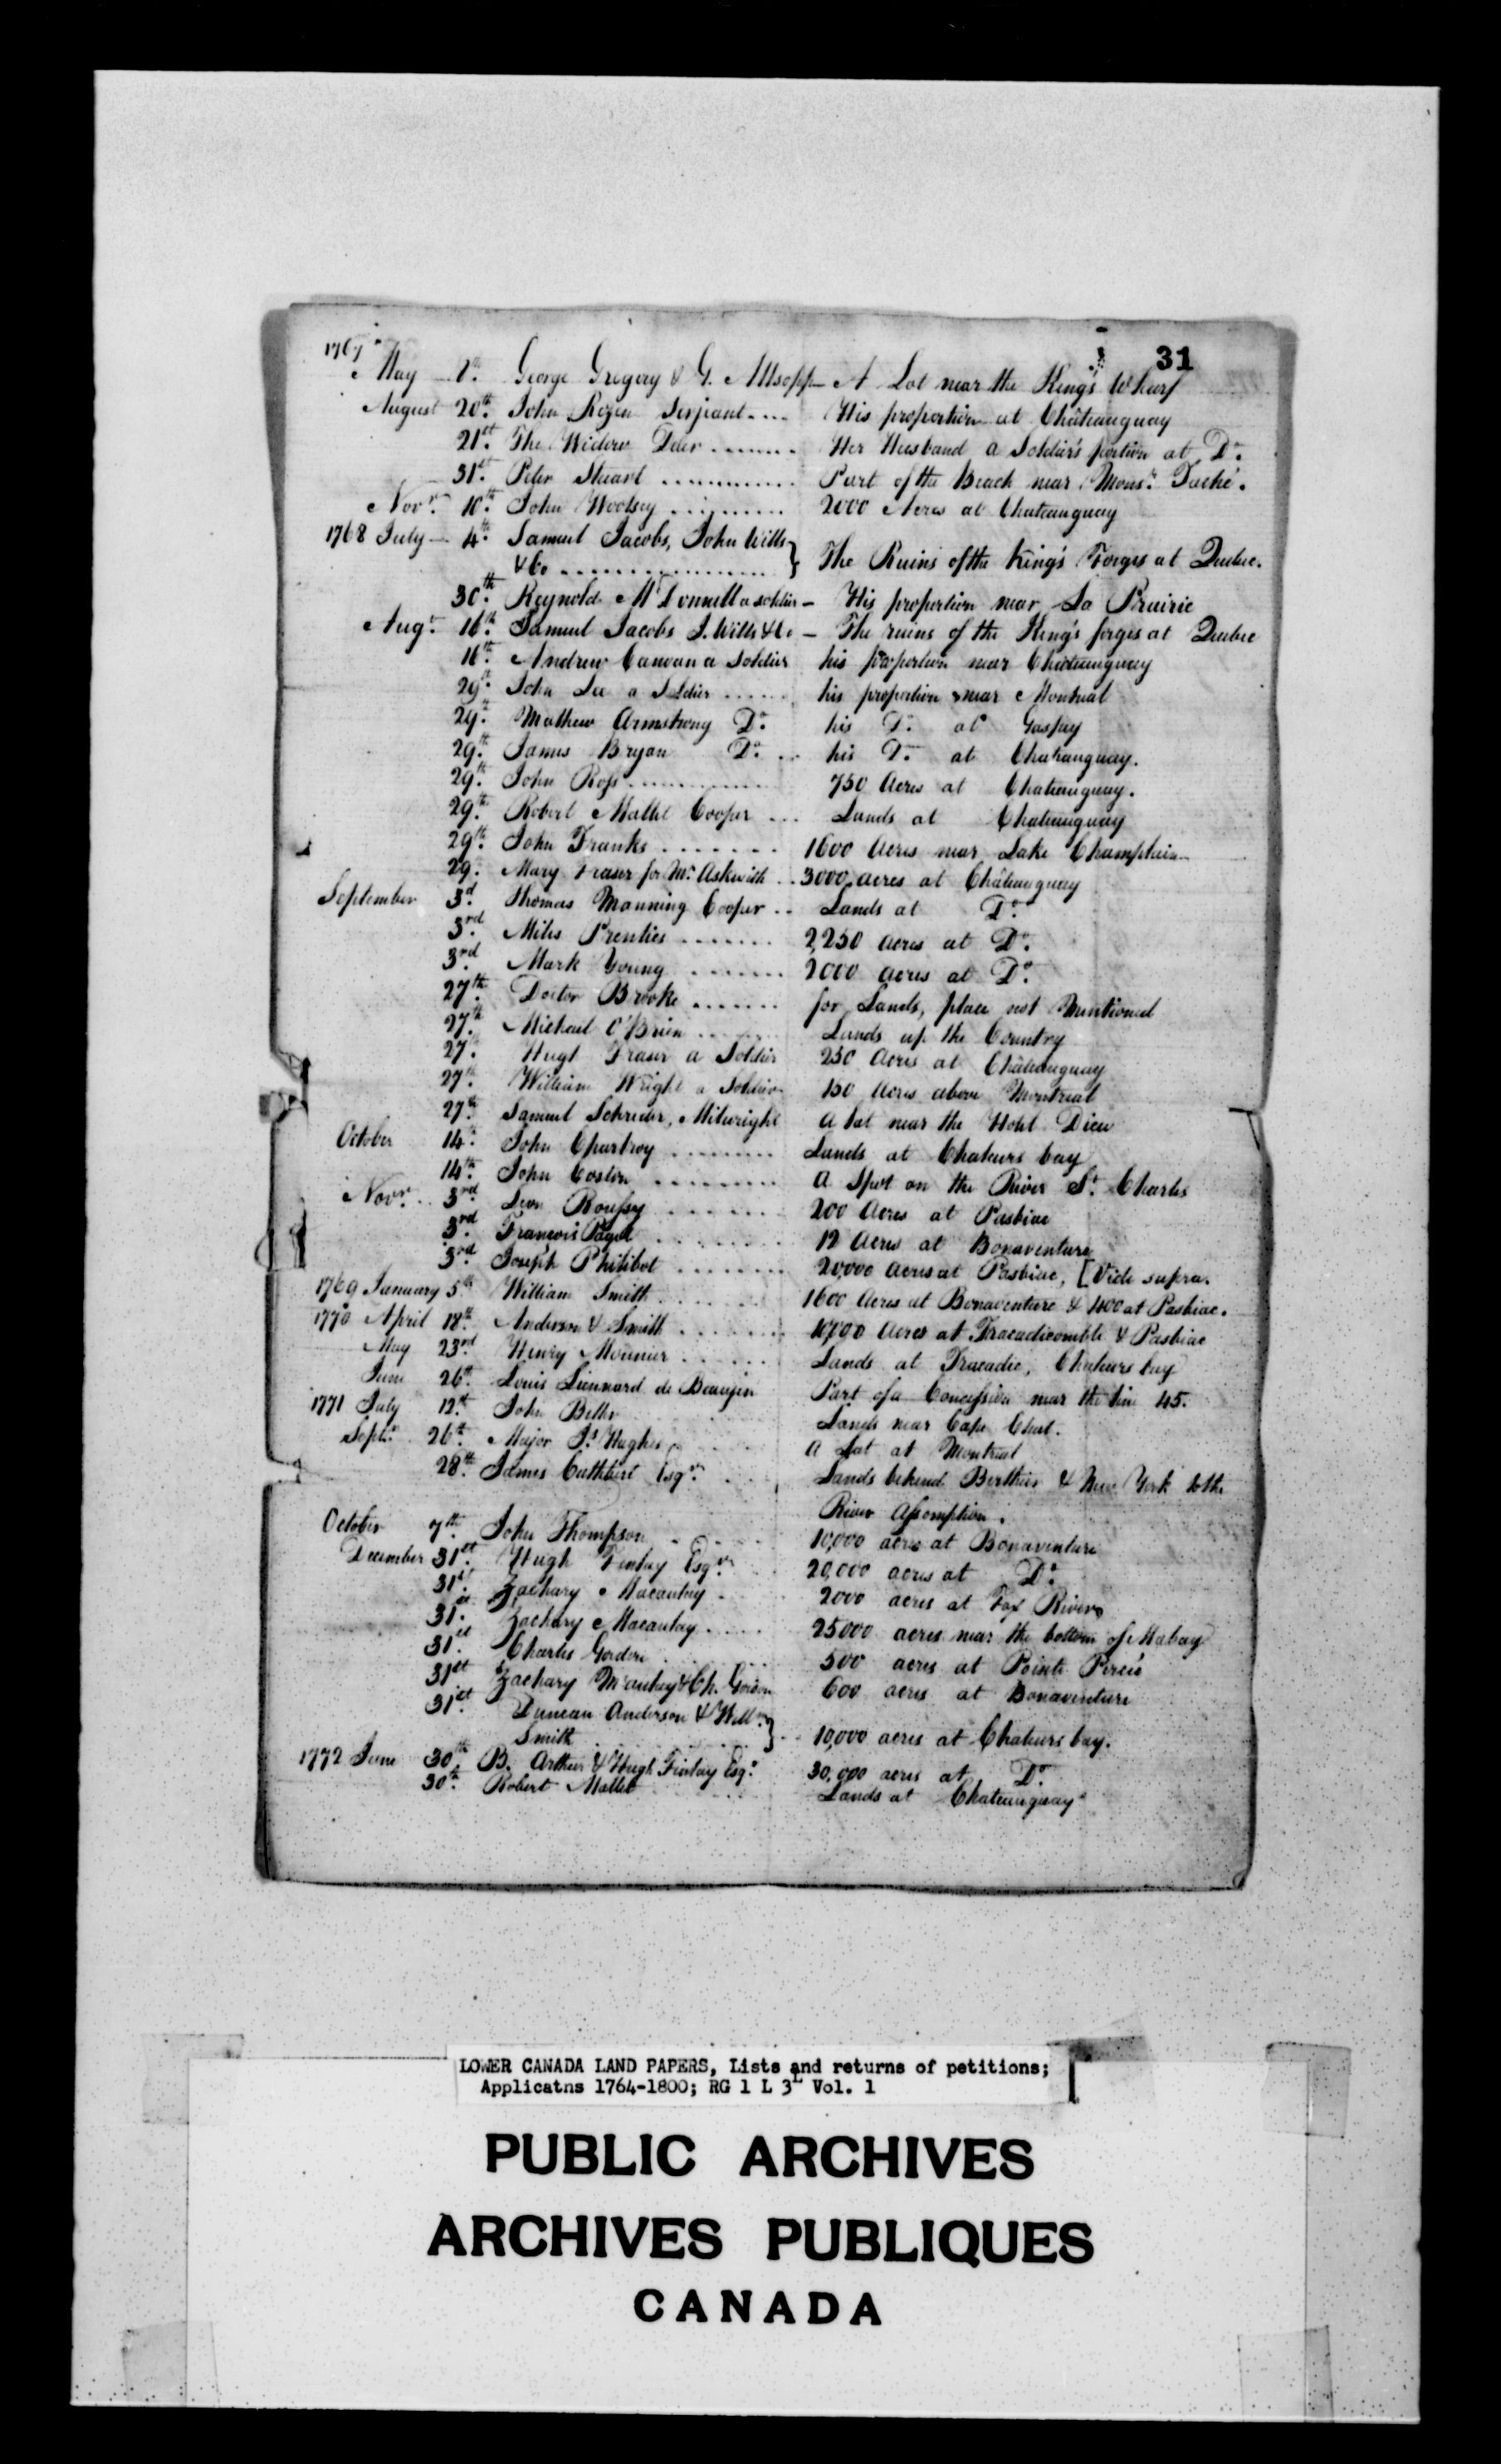 31
1767
May 1st. George Gregory & G. Allsopp - A Lot near the King's Wharf
August 20th. John Rozen Serjeant.... His proportion at Châteauguay
21st. The Widow Deer ....... Her Husband a Soldier's portion at Do.
31st. Peter Stuart ............ Part of the Beach near Monsr. Taché.
Novr. 10th. John Woolsey .......... 2000 Acres at Chateauguay
1768 July - 4th. Samuel Jacobs, John Wills }
& Co .................. } The Ruins of the King's Forges at Quebec.
30th. Reynold McDonnell a soldier - His proportion near La Prairie
Augt. 16th. Samuel Jacobs J. Wills & Co - The ruins of the King's forges at Quebec
16th. Andrew Canvan a Soldier his proportion near Chateauguay
29th. John Lee a Soldier ...... his proportion near Montreal
29th. Mathew Armstrong Do. his Do. at Gaspay
29th. James Bryan Do. ... his Do. at Chateauguay.
29th. John Ross .............. 750 Acres at Chateauguay.
29th. Robert Mallet Cooper ... Lands at Chateauguay
29th. John Franks ........ 1600 Acres near Lake Champlain
29. Mary Fraser for Mr. Askwith .. 3000 acres at Châteauguay
September 3d. Thomas Manning Cooper .. Lands at Do.
3rd. Miles Prenties ....... 2,250 acres at Do.
3rd. Mark Young ....... 2000 acres at Do.
27th. Doctor Brooke ....... for Lands, place not Mentioned
27th. Michael O'Brien ....... Lands up the Country
27. Hugh Fraser a Soldier 250 Acres at Châteauguay
27th. William Wright a Soldier 150 Acres above Montreal
27th. Samuel Schreder, Milwright A Lot near the Hotel Dieu
October 14th. John Chartroy ......... Lands at Chaleurs bay
14th. John Coslin ......... A Spot on the River St. Charles
Novr. 3rd. Leon Roussy ....... 200 Acres at Pasbiac
3rd. François Paget ........ 12 Acres at Bonaventure
3rd. Joseph Philibot ........ 20,000 acres at Pasbiac, [Vide supra.
1769 January 5th William Smith ....... 1600 Acres at Bonaventure & 400 at Pasbiac.
1770 April 18th. Anderson & Smith ........ 10,000 Acres at Tracadicomble & Pasbiac
May 23rd. Henry Mounier ...... Lands at Tracadie, Chaleurs bay
June 26th. Louis Liennard de Beaujeu Part of a Concession near the line 45.
1771 July 12th. John Beller Lands near Cape Chat.
Septr. 26th. Major Js. Hughes A Lot at Montreal
28th. James Cuthbert Esqr. Lands behind Berthier & New York to the
River Assomption.
October 7th. John Thompson 10,000 acres at Bonaventure
December 31st. Hugh Finlay Esqr. 20,000 acres at Do.
31st. Zachary Macaulay . 2000 acres at Fox River
31st. Zachary Macaulay ..... 25000 acres near the bottom of Malbay
31st. Charles Gordon ........ 500 acres at Pointe Percée
31st Zachary Mcaulay & Ch. Gordon 600 acres at Bonaventure
31st. Duncan Anderson & Willm. }
Smith ............ } 10,000 acres at Chaleurs bay.
1772 June 30th B. Arthur & Hugh Finlay Esqr. 30,000 acres at Do.
30th. Robert Mallet Lands at Chateauguay
LOWER CANADA LAND PAPERS, Lists and returns of petitions;
Applicatns 1764-1800; RG 1 L 3L Vol. 1
PUBLIC ARCHIVES
ARCHIVES PUBLIQUES
CANADA